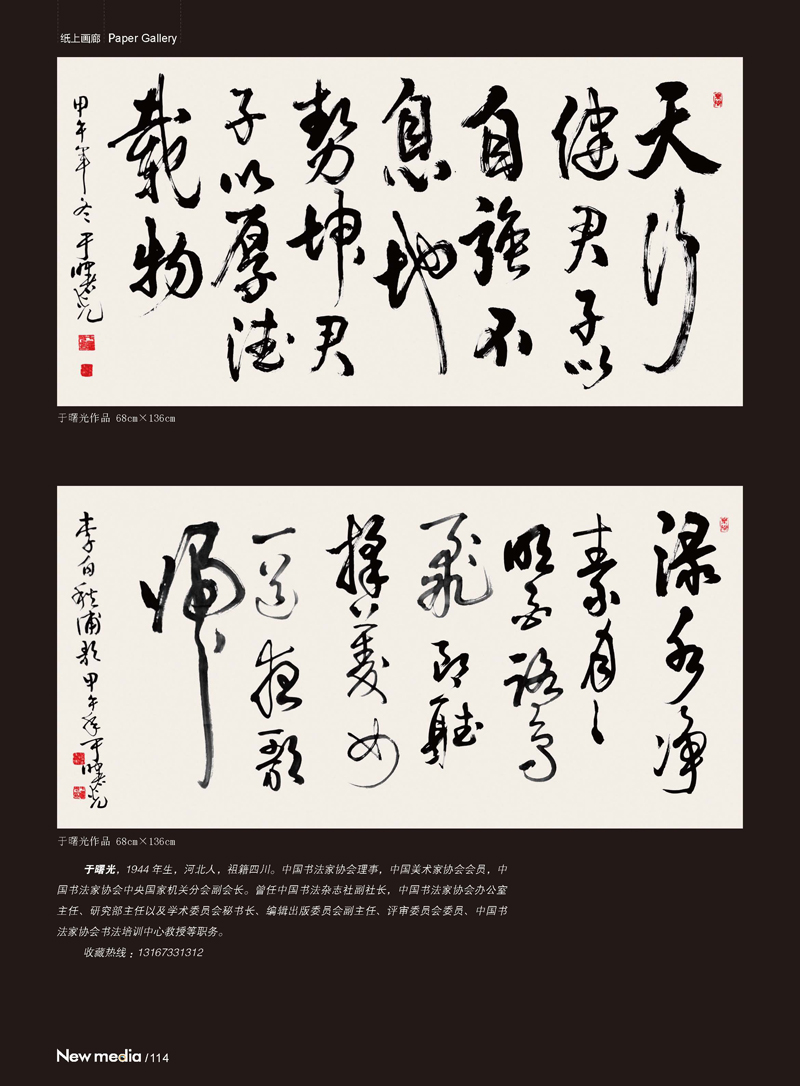 纸上画廊 Paper Gallery
天行
健君子以
自強不
息地
勢坤君
子以厚德
載物
甲午年冬于曙光
于曙光作品 68cm×136cm
渌水净
素月々
明白鷺
飛郎聽
採菱女
一道夜歌
歸
李白秋浦歌甲午年于曙光
于曙光作品 68cm×136cm
于曙光，1944年生，河北人，祖籍四川。中国书法家协会理事，中国美术家协会会员，中
国书法家协会中央国家机关分会副会长。曾任中国书法杂志社副社长，中国书法家协会办公室
主任、研究部主任以及学术委员会秘书长、编辑出版委员会副主任、评审委员会委员、中国书
法家协会书法培训中心教授等职务。
收藏热线：13167331312
New media /114